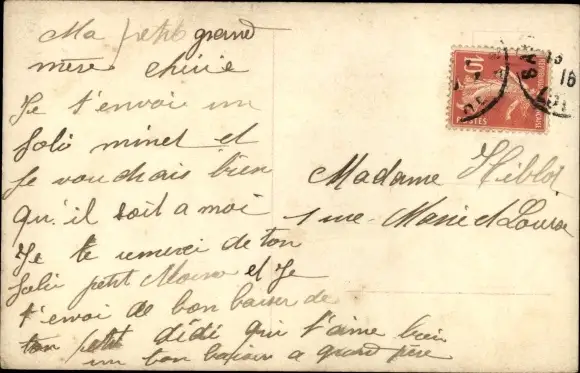 Ma petit grand
mère chérie
Je t'envoi un
Joli minet et
Je voudrais bien
qu'il soit a moi
Je te remerci de ton
Joli petit et Je
t'envoi de bon baiser de
ton petit dédé qui t'aime bien
un bon baiser a grand père
Madame Hiblot
1 rue Marie et Louise
10
POSTES
16